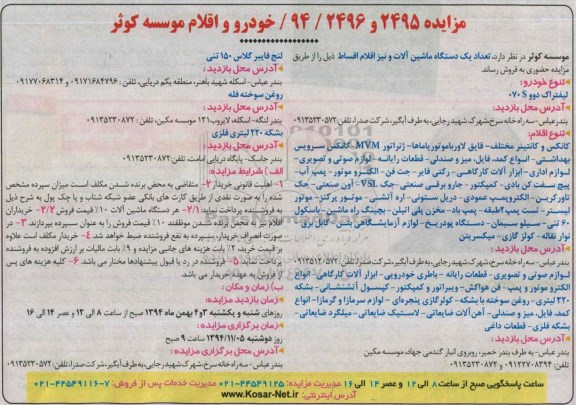 مزایده ۲۴۹۵ و ۲۴۹۶ / ۹۴ / خودرو و اقلام موسسه کوثر
موسسه کوثر در نظر دارد، تعداد یک دستگاه ماشین آلات و نیز اقلام اقساط ذیل را از طریق
مزایده حضوری به فروش رساند.
تنوع خودرو:
لیفتراک دوو ۰۷۰S
آدرس محل بازدید:
بندرعباس- سه راه خانه سرخ، شهرک شهید رجایی، به طرف آبگیر، شرکت صدرا، تلفن: ۰۹۱۳۵۲۳۰۵۷۲
تنوع اقلام:
کانکس و کانتینر مختلف- قایق لاورباموتوریاماها- ژنراتور MVM- کانکس سرویس
بهداشتی- انواع کمد، فایل، میز و صندلی- قطعات رایانه- لوازم صوتی و تصویری-
لوازم اداری- ابزار آلات کارگاهی- رکتی فایر- جت فن- الکترو موتور- پمپ آب-
پیچ سفت کن بادی- کمپکتور- جارو برقی صنعتی- چک VSL- آون صنعتی- جک
تاورکرین- الکتروپمپ عمودی- دریل ستونی- اره آتشی- موتور پرکنز- موتور
لیستر- تست پمپ ۲طبقه- پمپ باد- مخزن پلی اتیلن- بچینگ راه ماشین- باسکول
۶۰ تنی- سیلو سیمان- دستگاه پودریخ- لوازم آزمایشگاهی بتن- کابل برق-
نوار نقاله- کولر گازی- میکسر بتن
آدرس محل بازدید:
بندرعباس- سه راه خانه سرخ، شهرک شهید رجایی، به طرف آبگیر، شرکت صدرا، تلفن:
لوازم صوتی و تصویری- قطعات رایانه- باطری خودرویی- ابزار آلات کارگاهی- انواع
الکترو موتور و پمپ- فن هواکش- ویبراتور و کمپکتور- کپسول آتشنشانی- بشکه
۲۲۰ لیتری- روغن سوخته با بشکه- کولرگازی پنجره‌ای- لوازم سرماو گرمازا- انواع
کمد، فایل، میز و صندلی- آهن آلات ضایعاتی- لاستیک ضایعاتی- میلگرد ضایعاتی-
بشکه فلزی- قطعات داغی
آدرس محل بازدید:
بندرعباس- به طرف بندر خمیر، روبروی انبار گندمی جهاد، موسسه مکین
تلفن: ۰۹۱۲۲۷۰۸۳۹۴ و ۰۹۱۳۵۲۳۰۸۷۲
لنج فایبر گلاس ۱۵۰ تنی
آدرس محل بازدید:
بندر عباس- اسکله شهید باهنر، منطقه یکم دریایی، تلفن: ۰۹۱۷۱۶۸۴۷۹۶ - ۰۹۱۷۷۰۶۸۳۱۴
روغن سوخته فله
آدرس محل بازدید:
بندر لنگه- اسکله، لایروب ۱۲۱ موسسه مکین، تلفن: ۰۹۱۳۵۲۳۰۸۷۲
بشکه ۲۲۰ لیتری فلزی
آدرس محل بازدید:
بندر جاسک- پایگاه دریایی امامت، تلفن: ۰۹۱۳۵۲۳۰۸۷۲
الف) شرایط مزایده:
۱- اهلیت قانونی خریدار ۲- متقاضی به محض برنده شدن مکلف است میزان سپرده مشخص
شده را به صورت نقدی از طریق کارت های بانکی عضو شبکه شتاب و یا چک پول به شرح ذیل
به فروشنده پرداخت نماید ۲/۱- هر دستگاه ماشین آلات ۱۰٪ قیمت فروش ۲/۲- خریداران
اقلام نیز به محض برنده شدن موظفند ۱۰٪ قیمت فروش را به عنوان سپرده بپردازند. ۳- در
صورت انصراف خریدار، سپرده به نفع فروشنده ضبط خواهد شد. ۴- خریدار مکلف است علاوه
بر قیمت خرید، ۲٪ هزینه های جانبی مزایده و ۹٪ بابت مالیات بر ارزش افزوده به فروشنده
پرداخت نماید. ۵- فروشنده در رد یا قبول پیشنهادها مختار می باشد. ۶- کلیه هزینه های پس
از فروش به عهده خریدار می باشد.
ب) زمان و مکان:
زمان بازدید مزایده:
روزهای شنبه و یکشنبه ۳و۴ بهمن ماه ۱۳۹۴ صبح از ساعت ۸ الی ۱۲ و عصر ۱۴ الی ۱۶
زمان برگزاری مزایده:
روز دوشنبه ۱۳۹۴/۱۱/۰۵ ساعت ۹ صبح
آدرس محل برگزاری مزایده:
بندرعباس- سه راه خانه سرخ، شهرک شهید رجایی، به طرف آبگیر، شرکت صدرا، تلفن: ۰۹۱۳۵۲۳۰۸۷۲
ساعت پاسخگویی صبح از ساعت ۸ الی ۱۲ و عصر ۱۴ الی ۱۶ مدیریت مزایده: ۴۴۵۴۹۱۲۵-۰۲۱ مدیریت خدمات پس از فروش: ۷-۴۴۵۴۹۱۱۶-۰۲۱
آدرس اینترنتی: www.Kosar-Net.ir